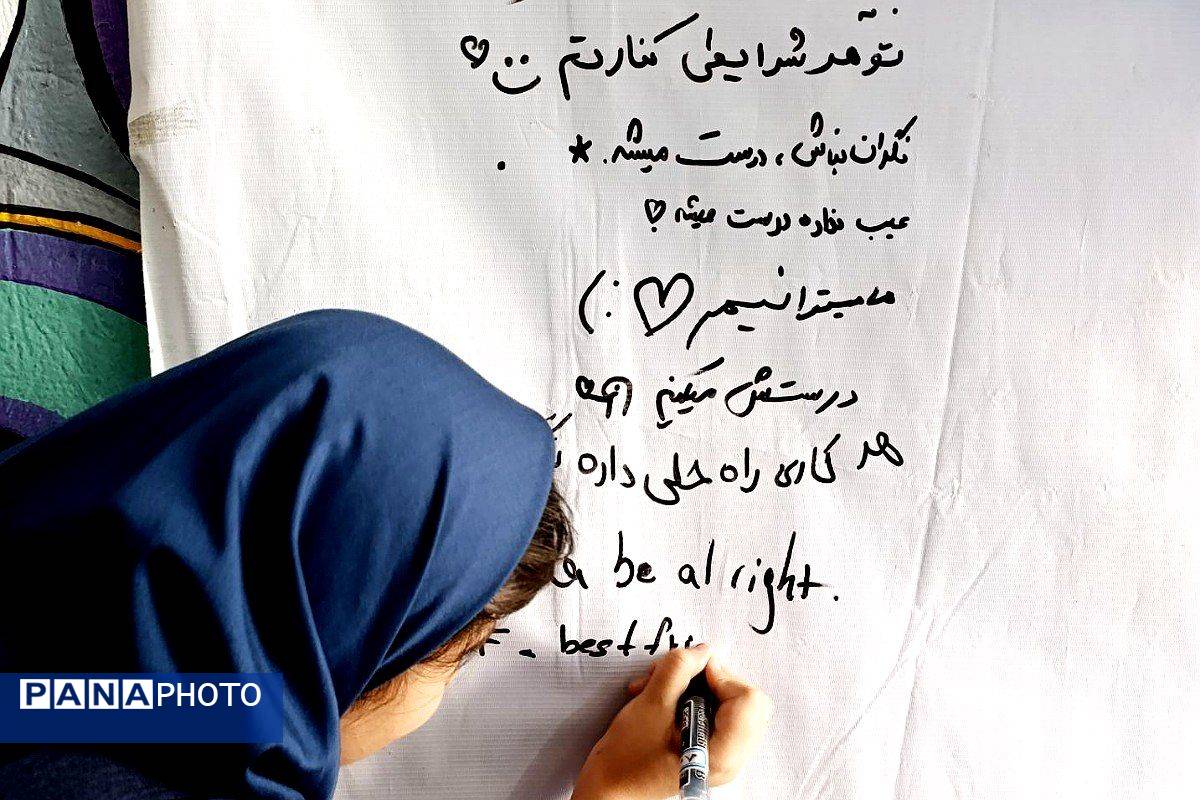 تو هر شرایطی کنارتم
نگران نباش، درست میشه.
عیب نداره درست میشه
ما میتوانیم :)
درستش میکنیم
هر کاری راه حلی داره
be al right.
best
PANAPHOTO